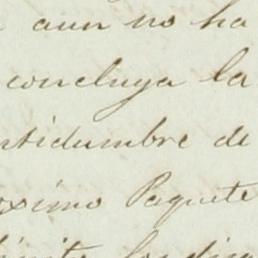 aun no ha
concluya la
ntidumbre de
oximo Paquete